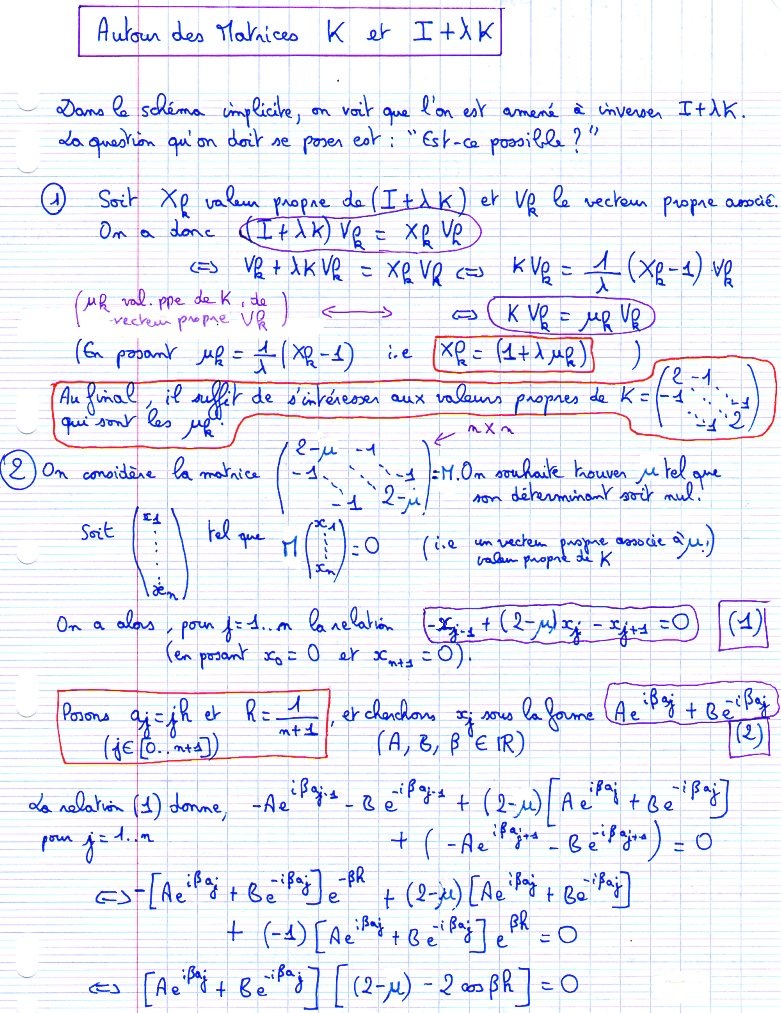 Autour des Matrices K et I + λK
Dans le schéma implicite, on voit que l'on est amené à inverser I+λK.
La question qu'on doit se poser est : "Est-ce possible ?"
① Soit Xk valeur propre de (I+λK) et Vk le vecteur propre associé.
On a donc (I+λK) Vk = Xk Vk
⇔ Vk + λK Vk = Xk Vk ⇔ K Vk = 1/λ (Xk-1) Vk
(μk val. ppe de K, de vecteur propre Vk) ⟷ ⇔ K Vk = μk Vk
(En posant μk = 1/λ (Xk-1) i.e Xk = (1+λμk) )
Au final, il suffit de s'intéresser aux valeurs propres de K = (2 -1 / -1 ⋱ ⋱ -1 / ⋱ -1 2)
qui sont les μk.
n×n
② On considère la matrice (2-μ -1 / -1 ⋱ ⋱ -1 / -1 2-μ) = M. On souhaite trouver μ tel que
son déterminant soit nul.
Soit (x1 ⋮ xn) tel que M (x1 ⋮ xn) = 0 (i.e un vecteur propre associé à μ,)
valeur propre de K
On a alors, pour j=1..n la relation -xj-1 + (2-μ)xj - xj+1 = 0 (1)
(en posant x0 = 0 et xn+1 = 0).
Posons aj = jh et h = 1/(n+1), et cherchons xj sous la forme Ae^{iβaj} + Be^{-iβaj}
(j∈[0..n+1]) (A, B, β ∈ ℝ) (2)
La relation (1) donne, -Ae^{iβaj-1} - Be^{-iβaj-1} + (2-μ)[Ae^{iβaj} + Be^{-iβaj}]
pour j=1..n + (-Ae^{iβaj+1} - Be^{-iβaj+1}) = 0
⇔ -[Ae^{iβaj} + Be^{-iβaj}] e^{-βh} + (2-μ)[Ae^{iβaj} + Be^{-iβaj}]
+ (-1)[Ae^{iβaj} + Be^{-iβaj}] e^{βh} = 0
⇔ [Ae^{iβaj} + Be^{-iβaj}] [(2-μ) - 2 cos βh] = 0